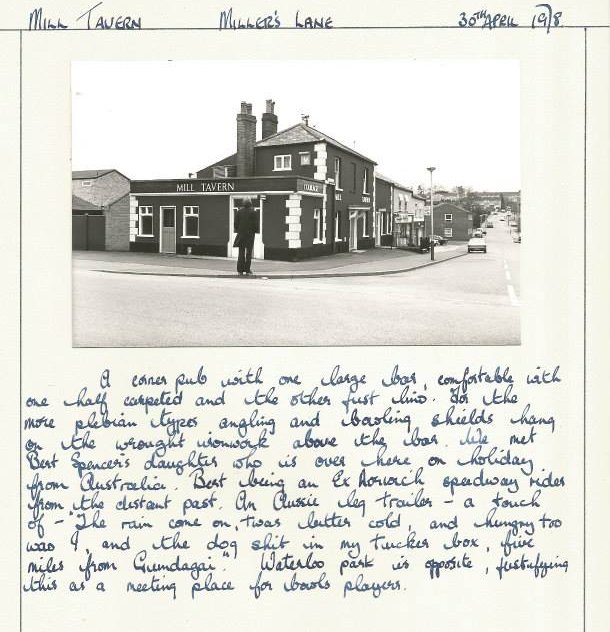 MILL TAVERN MILLER'S LANE 30TH APRIL 1978
MILL TAVERN
COURAGE
MILL
TAVERN
A corner pub with one large bar, comfortable with
one half carpeted and the other just lino. For the
more plebian types angling and bowling shields hang
on the wrought ironwork above the bar. We met
Bert Spencer's daughter who is over here on holiday
from Australia. Bert being an Ex Norwich speedway rider
from the distant past. An Aussie leg trailer – a touch
of – "The rain come on, 'twas bitter cold, and hungry too
was I, and the dog shit in my tucker box, five
miles from Gundagai." Waterloo park is opposite, justifying
this as a meeting place for bowls players.